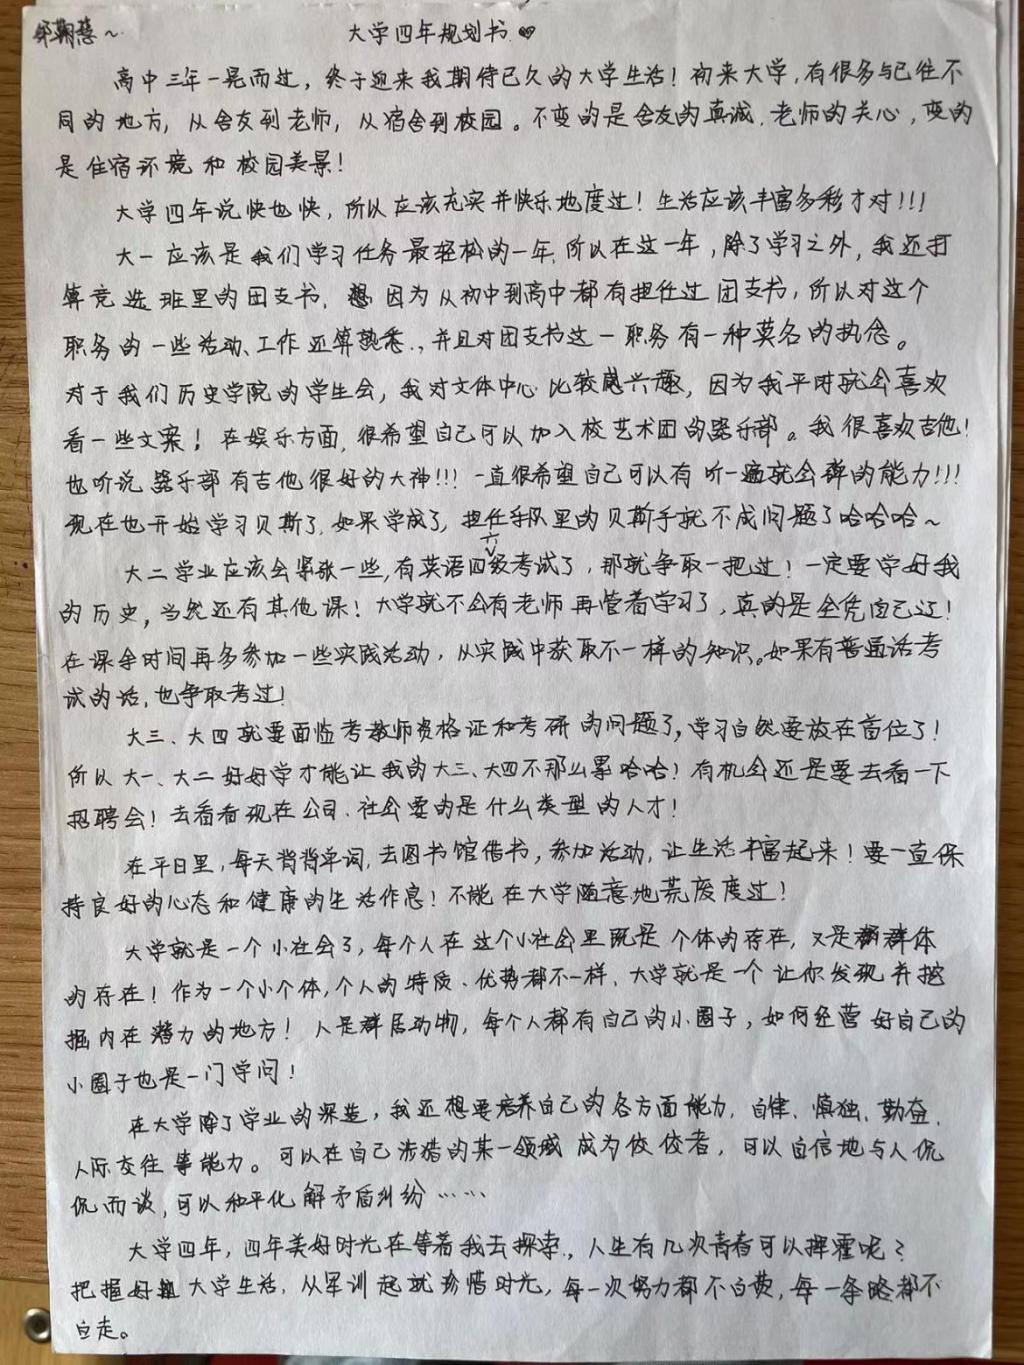 大学四年规划书
高中三年一晃而过，终于迎来我期待已久的大学生活！初来大学，有很多与已往不
同的地方，从舍友到老师，从宿舍到校园。不变的是舍友的真诚、老师的关心，变的
是住宿环境和校园美景！
大学四年说快也快，所以应该充实并快乐地度过！生活应该丰富多彩才对！！！
大一应该是我们学习任务最轻松的一年，所以在这一年，除了学习之外，我还打
算竞选班里的团支书，因为从初中到高中都有担任过团支书，所以对这个
职务的一些活动、工作还算熟悉，并且对团支书这一职务有一种莫名的执念。
对于我们历史学院的学生会，我对文体中心比较感兴趣，因为我平时就会喜欢
看一些文案！在娱乐方面，很希望自己可以加入校艺术团的器乐部。我很喜欢吉他！
也听说器乐部有吉他很好的大神！！！一直很希望自己可以有听一遍就会弹的能力！！！
现在也开始学习贝斯了，如果学成了，担任乐队里的贝斯手就不成问题了哈哈哈～
大二学业应该会紧张一些，有英语四六级考试了，那就争取一把过！一定要学好我
的历史，当然还有其他课！大学就不会有老师再管着学习了，真的是全凭自己了！
在课余时间再多参加一些实践活动，从实践中获取不一样的知识。如果有普通话考
试的话，也争取考过！
大三、大四就要面临考教师资格证和考研的问题了，学习自然要放在首位了！
所以大一、大二好好学才能让我的大三、大四不那么累哈哈！有机会还是要去看一下
招聘会！去看看现在公司、社会要的是什么类型的人才！
在平日里，每天背背单词，去图书馆借书，参加活动，让生活丰富起来！要一直保
持良好的心态和健康的生活作息！不能在大学随意地荒废度过！
大学就是一个小社会了，每个人在这个小社会里既是个体的存在，又是群体
的存在！作为一个小个体，个人的特质、优势都不一样，大学就是一个让你发现并挖
掘内在潜力的地方！人是群居动物，每个人都有自己的小圈子，如何经营好自己的
小圈子也是一门学问！
在大学除了学业的深造，我还想要培养自己的各方面能力，自律、慎独、勤奋、
人际交往等能力。可以在自己涉猎的某一领域成为佼佼者，可以自信地与人侃
侃而谈，可以和平化解矛盾纠纷……
大学四年，四年美好时光在等着我去探索，人生有几次青春可以挥霍呢？
把握好大学生活，从军训起就珍惜时光，每一次努力都不白费，每一条路都不
白走。